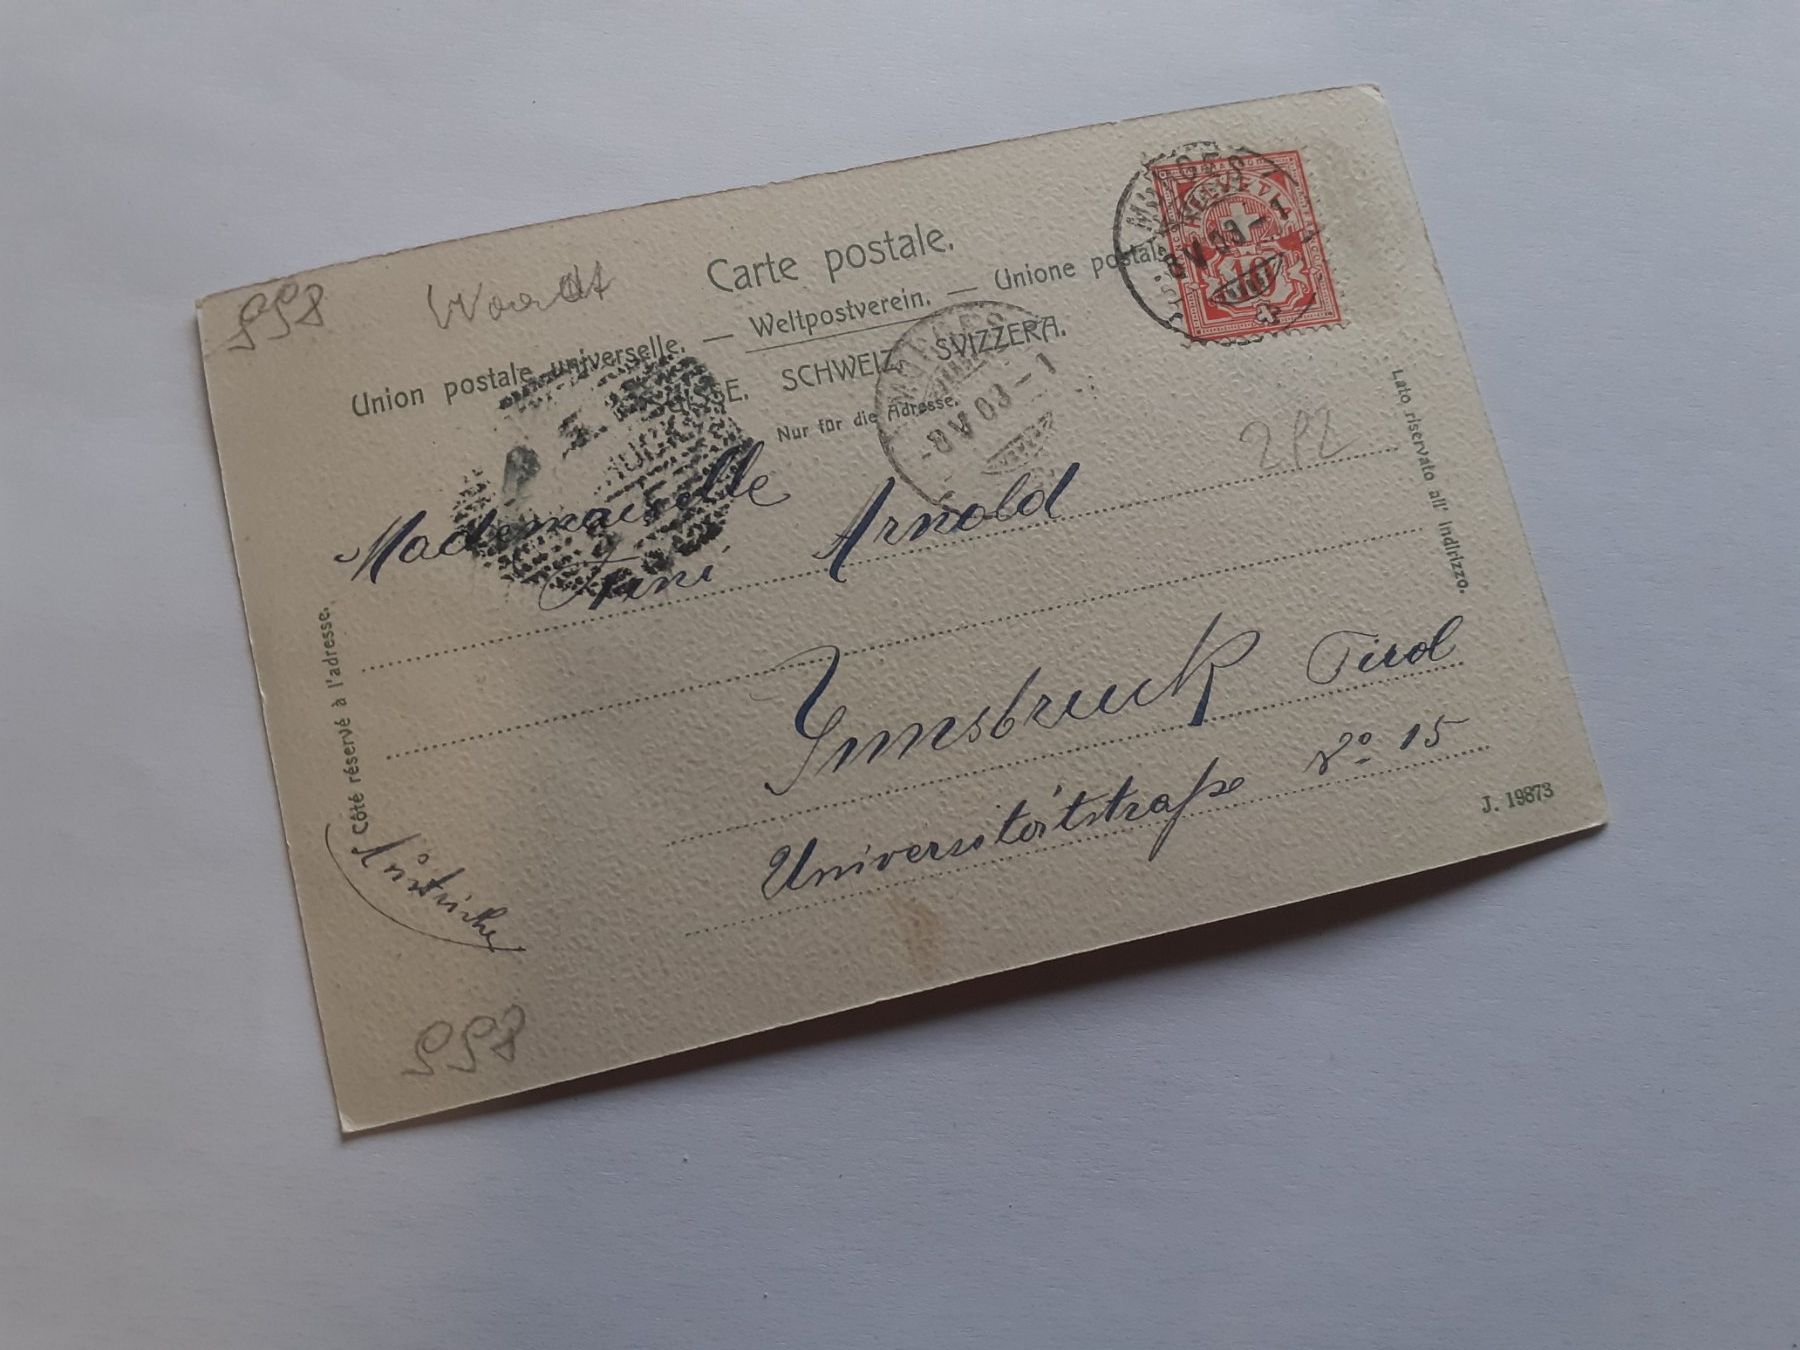 Carte postale.
Union postale universelle. — Weltpostverein. — Unione postale
SUISSE. SCHWEIZ. SVIZZERA.
Nur für die Adresse.
Côté réservé à l'adresse.
Lato riservato all' indirizzo.
HELVETIA
10
MORGES
8 V 03 - 1
MORGES
- 8 V 03 - 1
212
Mademoiselle
Arnold
Innsbruck Tirol
Universitätstraße No. 15
Autriche
J. 19873